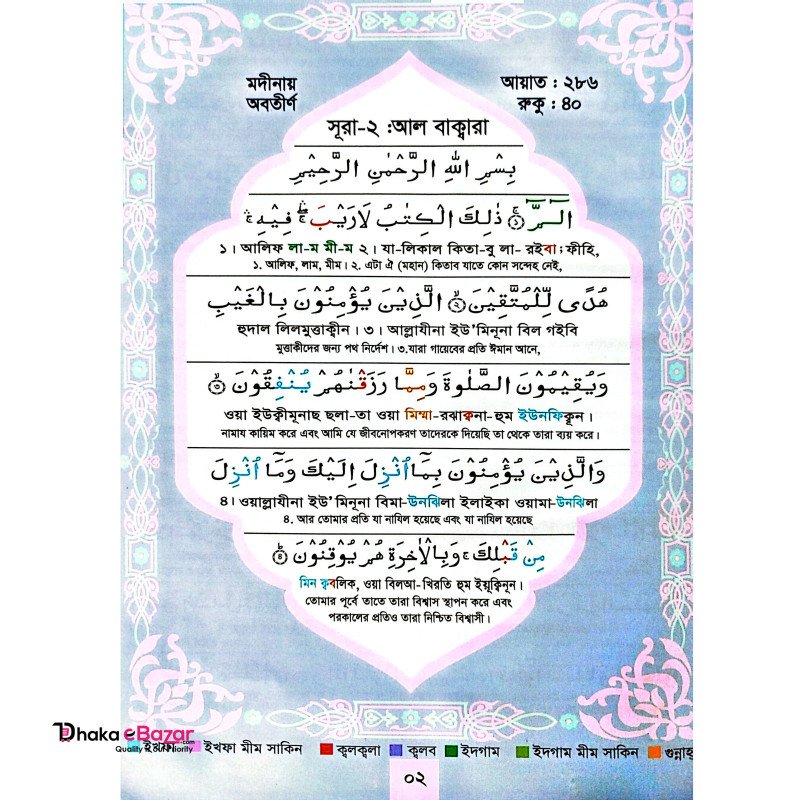 মদীনায়
অবতীর্ণ
আয়াত : ২৮৬
রুকু : ৪০
সূরা-২ :আল বাক্বারা
بِسْمِ اللهِ الرَّحْمٰنِ الرَّحِيْمِ
الٓمّٓ ۚ﴿۱﴾ ذٰلِكَ الْكِتٰبُ لَا رَيْبَ ۛۚ فِيْهِ ۛۚ
১। আলিফ লা-ম মী-ম ২। যা-লিকাল কিতা-বু লা- রইবা; ফীহি,
১. আলিফ, লাম, মীম। ২. এটা ঐ (মহান) কিতাব যাতে কোন সন্দেহ নেই,
هُدًى لِّلْمُتَّقِيْنَ ۙ﴿۲﴾ الَّذِيْنَ يُؤْمِنُوْنَ بِالْغَيْبِ
হুদাল লিলমুত্তাক্বীন। ৩। আল্লাযীনা ইউ'মিনূনা বিল গইবি
মুত্তাকীদের জন্য পথ নির্দেশ। ৩.যারা গায়েবের প্রতি ঈমান আনে,
وَيُقِيْمُوْنَ الصَّلٰوةَ وَمِمَّا رَزَقْنٰهُمْ يُنْفِقُوْنَ ۙ﴿۳﴾
ওয়া ইউক্বীমূনাছ ছলা-তা ওয়া মিম্মা-রঝাক্বনা-হুম ইউনফিক্বূন।
নামায কায়িম করে এবং আমি যে জীবনোপকরণ তাদেরকে দিয়েছি তা থেকে তারা ব্যয় করে।
وَالَّذِيْنَ يُؤْمِنُوْنَ بِمَآ اُنْزِلَ اِلَيْكَ وَمَآ اُنْزِلَ
৪। ওয়াল্লাযীনা ইউ'মিনূনা বিমা-উনঝিলা ইলাইকা ওয়ামা-উনঝিলা
৪. আর তোমার প্রতি যা নাযিল হয়েছে এবং যা নাযিল হয়েছে
مِنْ قَبْلِكَ ۚ وَبِالْاٰخِرَةِ هُمْ يُوْقِنُوْنَ ؕ﴿۴﴾
মিন ক্ববলিক, ওয়া বিলআ-খিরতি হুম ইয়ূক্বিনূন।
তোমার পূর্বে তাতে তারা বিশ্বাস স্থাপন করে এবং
পরকালের প্রতিও তারা নিশ্চিত বিশ্বাসী।
Dhaka eBazar.com
Quality
ইখফা মীম সাকিন ক্বলক্বলা ক্বলব ইদগাম ইদগাম মীম সাকিন গুন্নাহ
০২